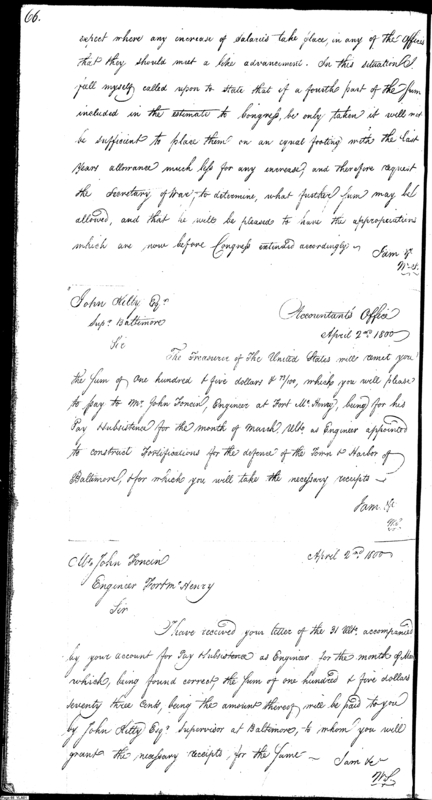 66.
expect where any increase of Salaries take place, in any of the Offices
that they should meet a like advancement. In this situation I
feel myself called upon to state that if a fourth part of the Sum
included in the estimate to Congress, be only taken it will not
be sufficient to place them on an equal footing with the last
Years allowance much less for any increase, and therefore request
the Secretary of War, to determine, what further Sum may be
allowed, and that he will be pleased to have the appropriations
which are now before Congress extended accordingly
I am &c
W. S.
John Kilty Esqr.
Supr. Baltimore
Sir
Accountants Office
April 2nd 1800
The Treasurer of The United States will remit you
the Sum of One hundred & five dollars & 73/100, which you will please
to pay to Mr. John Foncin, Engineer at Fort Mc.Henry, being for his
Pay & Subsistence for the month of March Ulto. as Engineer appointed
to construct Fortifications for the defence of the Town & Harbor of
Baltimore, & for which you will take the necessary receipts
I am &c
Mr. John Foncin
April 2nd 1800
Engineer Fort Mc.Henry
Sir
I have received your letter of the 31 Ulto. accompanied
by your account for Pay & Subsistence as Engineer for the month of
which, being found correct the Sum of one hundred & five dollars
seventy three Cents, being the amount thereof will be paid to you
by John Kilty Esqr. Supervisor at Baltimore, to whom you will
grant the necessary receipts for the Same
I am &c
W. S.